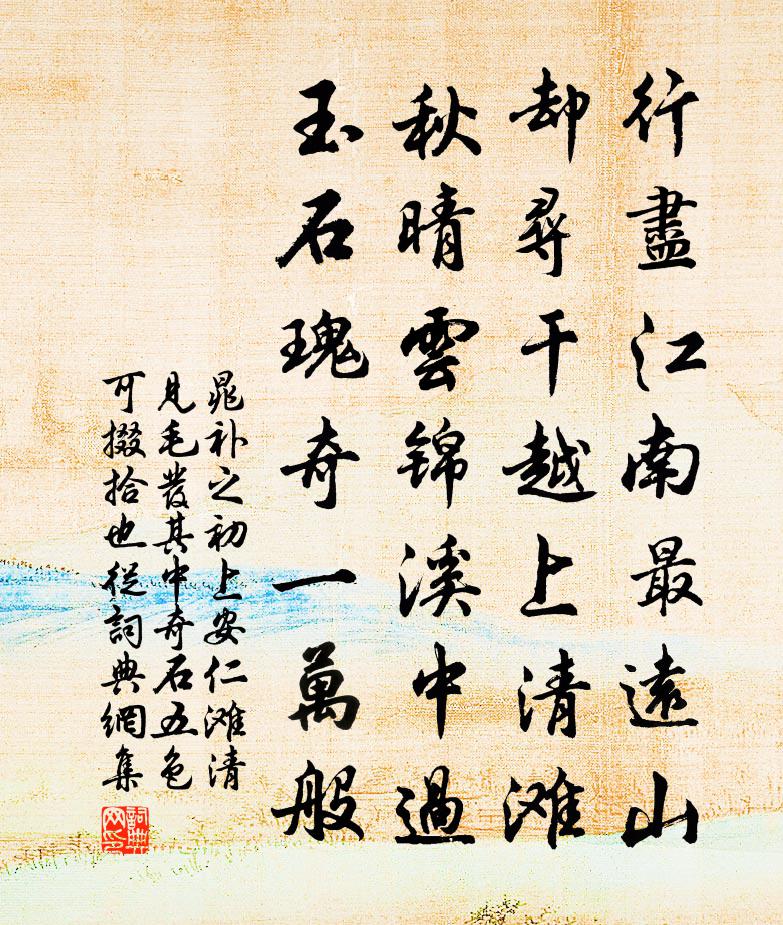 行盡江南最遠山
却尋干越上清滩
秋晴雲锦溪中過
玉石瑰奇一萬般
晁补之初上安仁滩清
見毛發其中奇石五色
可掇拾也從詞典網集